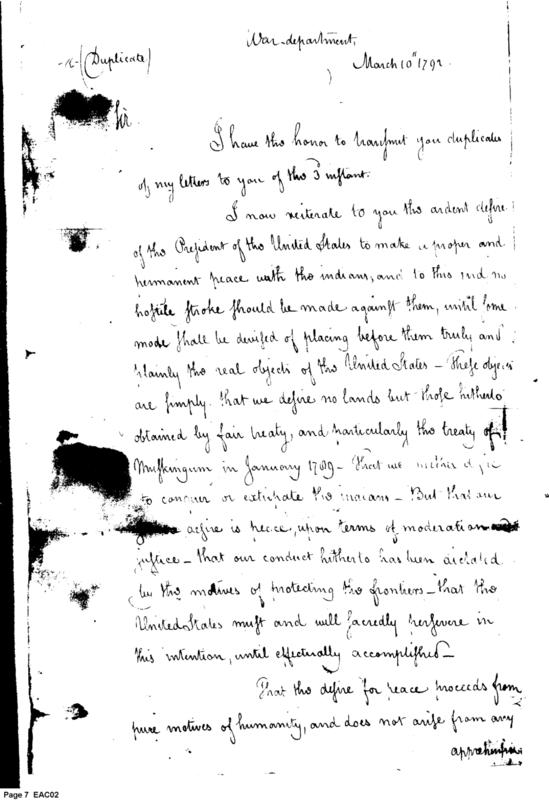 War-department,
(Duplicate)
March 10th 1792.
Sir
I have the honor to transmit you duplicates
of my letters to you of the 3d instant.
I now reiterate to you the ardent desire
of the President of the United States to make a proper and
permanent peace with the indians, and to this end no
hostile stroke should be made against them, until some
mode shall be devised of placing before them truly and
plainly the real objects of the United States – These objects
are simply. that we desire no lands but those hitherto
obtained by fair treaty, and particularly the treaty of
Muskingum in January 1789 – That we neither desire
to conquer or extirpate the indians – But that our
desire is peace, upon terms of moderation and
justice – that our conduct hitherto has been dictated
by the motives of protecting the frontiers – that the
United States must and will sacredly persevere in
this intention, until effectually accomplished –
That the desire for peace proceeds from
pure motives of humanity, and does not arise from any
apprehension
Page 7 EAC02